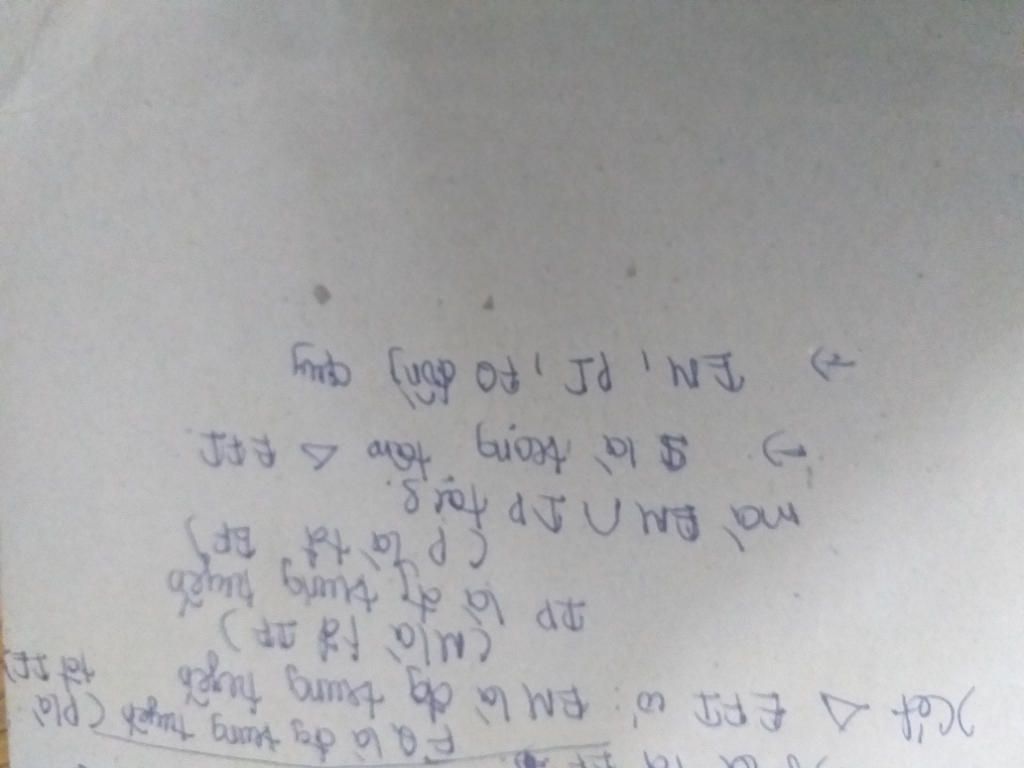 FQ là đg trung tuyến (P là tđ IE)
Xét △ EFI có: EM là đg trung tuyến
(M là tđ IF)
IP là đg trung tuyến
(P là tđ EF)
mà EM ∩ IP tại S.
→) S là trọng tâm △ EFI
→) EM, PI, FQ đồng quy